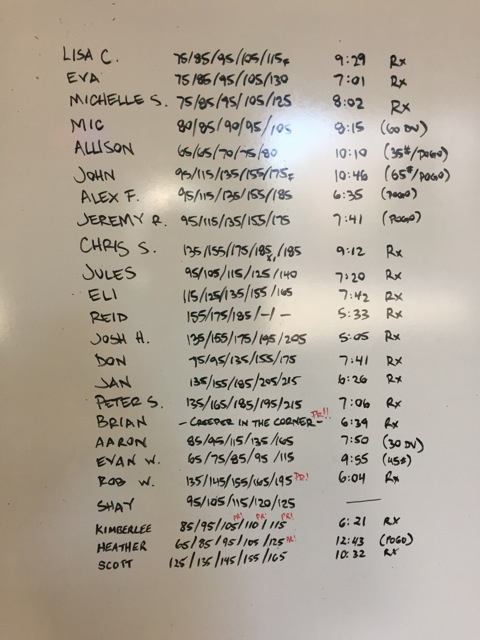 LISA C. 75/85/95/105/115F 9:29 Rx
EVA 75/85/95/105/130 7:01 Rx
MICHELLE S. 75/85/95/105/125 8:02 Rx
MIC 80/85/90/95/105 8:15 (60 DU)
ALLISON 65/65/70/75/80 10:10 (35#/POGO)
JOHN 95/115/135/155/175F 10:46 (65#/POGO)
ALEX F. 95/115/135/155/185 6:35 (POGO)
JEREMY R. 95/115/135/155/175 7:41 (POGO)
CHRIS S. 135/155/175/185x1/185 9:12 Rx
JULES 95/105/115/125/140 7:20 Rx
ELI 115/125/135/155/165 7:42 Rx
REID 155/175/185/-/- 5:33 Rx
JOSH H. 135/155/175/195/205 5:05 Rx
DON 75/95/135/155/175 7:41 Rx
JAN 135/155/185/205/215 6:26 Rx
PETER S. 135/165/185/195/215 7:06 Rx
BRIAN - CREEPER IN THE CORNER - PR!! 6:39 Rx
AARON 85/95/115/135/165 7:50 (30 DU)
EVAN W. 65/75/85/95/115 9:55 (45#)
ROB W. 135/145/155/165/195 PR! 6:04 Rx
SHAY 95/105/115/120/125 —
PR! PR! PR!
KIMBERLEE 85/95/105/110/115 6:21 Rx
HEATHER 65/85/95/105/125 PR! 12:43 (POGO)
SCOTT 125/135/145/155/165 10:32 Rx